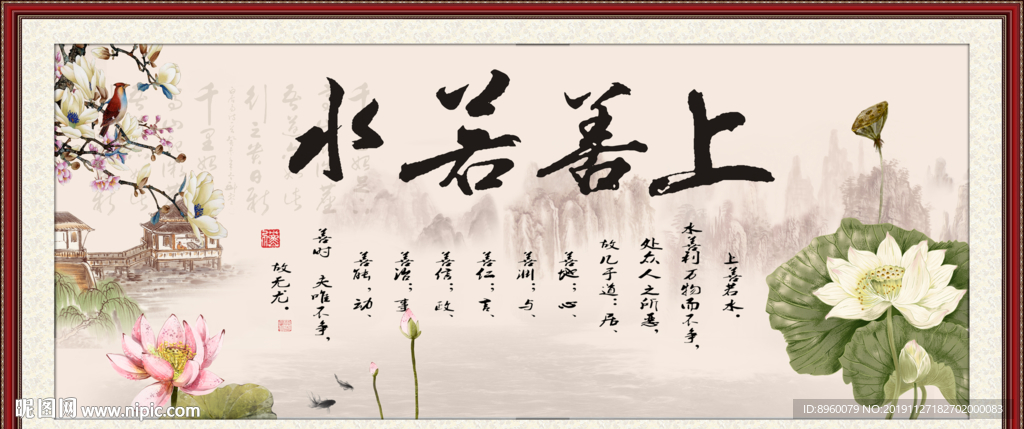 上善若水
上善若水。
水善利万物而不争，
处众人之所恶，
故几于道：居、
善地；心、
善渊；与、
善仁；言、
善信；政、
善治；事、
善能；动、
善时 夫唯不争，
故无尤。
昵图网 www.nipic.com
ID:8960079 NO:20191127182702000083